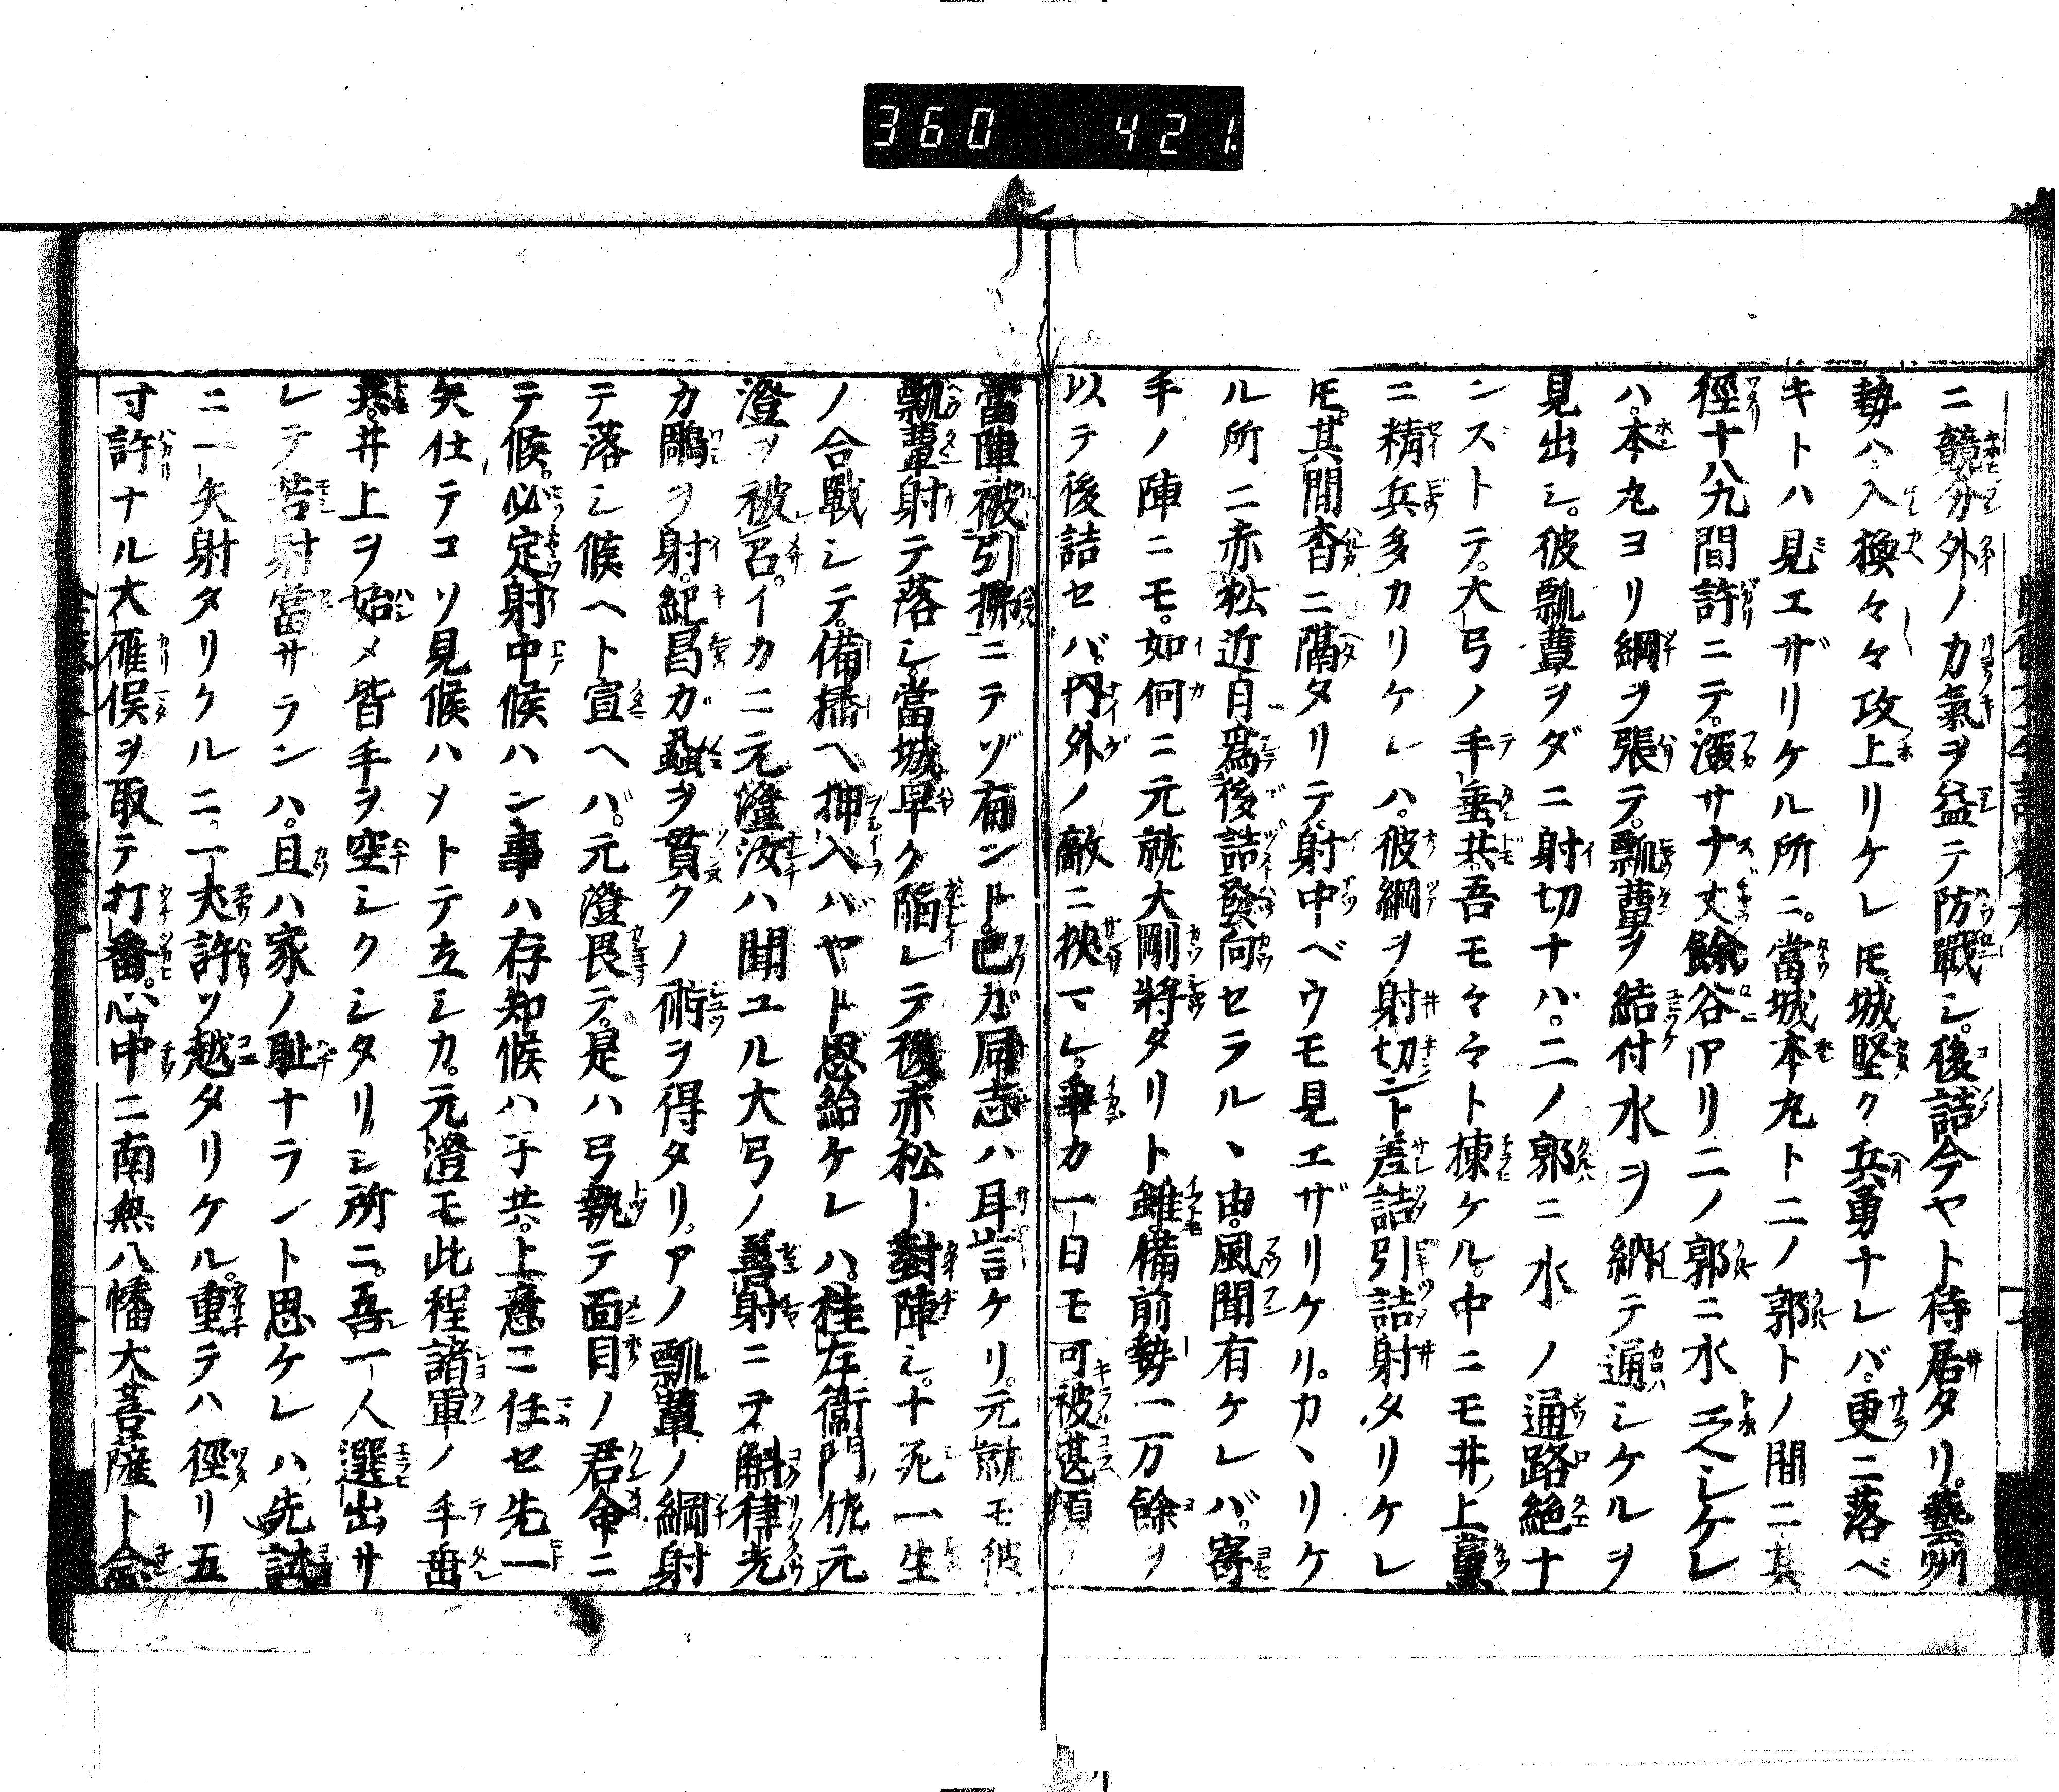 360 421
ニ競分外ノカ氣ヲ益テ防戰シ。後詰今ヤト待居タリ。藝州
勢ハ入換々々攻上リケレ𪜈。城堅ク兵勇ナレバ。更ニ落ベ
キトハ見エザリケル所ニ。當城本丸ト二ノ郭トノ間ニ其
徑十八九間許ニテ。深サナ丈餘谷アリ二ノ郭ニ水乏シケレ
ハ。本丸ヨリ綱ヲ張テ。瓢簟ヲ結付水ヲ納テ通シケルヲ
見出シ。彼瓢簟ヲダニ射切ナバ。二ノ郭ニ水ノ通路絶ナ
ンズトテ。大弓ノ手垂共吾モ々々ト揀ケル。中ニモ井上黨
ニ精兵多カリケレハ。彼綱ヲ射切ント差詰引詰射タリケレ
𪜈。其間杳ニ隔タリテ。射中ベウモ見エザリケリ。カヽリケ
ル所ニ赤松近日爲後詰發向セラルヽ由。風聞有ケレバ。寄
手ノ陣ニモ。如何ニ元就大剛將タリト雖備前勢一万餘ヲ
以テ後詰セバ。内外ノ敵ニ挾マレ。爭カ一日モ可被湛
當陣被引拂ニテゾ有ント。色ガ同志ハ耳言ケリ。元就モ彼
瓢簟射テ落シ。當城早ク陷レテ後赤松ト對陣シ。十死一生
ノ合戰シテ。備播ヘ押入バヤト思給ケレハ。桂左衞門佐元
澄ヲ被召。イカニ元澄汝ハ聞ユル大弓ノ善射ニテ。斛律光
カ鵰ヲ射。紀昌ガ蝨ヲ貫クノ術ヲ得タリ。アノ瓢簟ノ綱射
テ落シ候ヘト宣ヘバ。元澄畏テ。是ハ弓執テ面目ノ君命ニ
テ候。必定射中候ハン事ハ存知候ハ子共。上意ニ任セ先一
矢仕テコソ見候ハメトテ立シカ。元澄モ此程諸軍ノ手垂
共。井上ヲ始メ皆手ヲ空シクシタリシ所ニ。吾一人選出サ
レテ若射當サランハ。且ハ家ノ耻ナラント思ケレハ。先試
ニ一矢射タリクルニ。一丈許ソ越タリケル。重テハ徑リ五
寸許ナル大雁俣ヲ取テ打番。心中ニ南無八幡大菩薩ト念